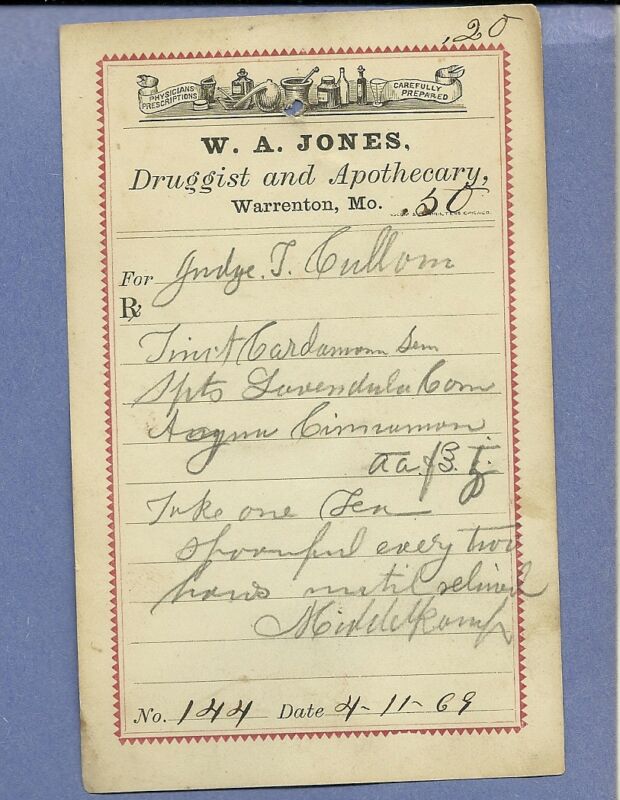 .20
PHYSICIANS PRESCRIPTIONS
CAREFULLY PREPARED
W. A. JONES,
Druggist and Apothecary,
Warrenton, Mo. .50
For Judge. T. Cullom
℞
Tinct Cardamom Sem
Spts Lavendula Com
Aqua Cinnamon
aa. f℥ j.
Take one Tea
spoonful every two
hours until relieved
Middelkamp
No. 144 Date 4-11-69